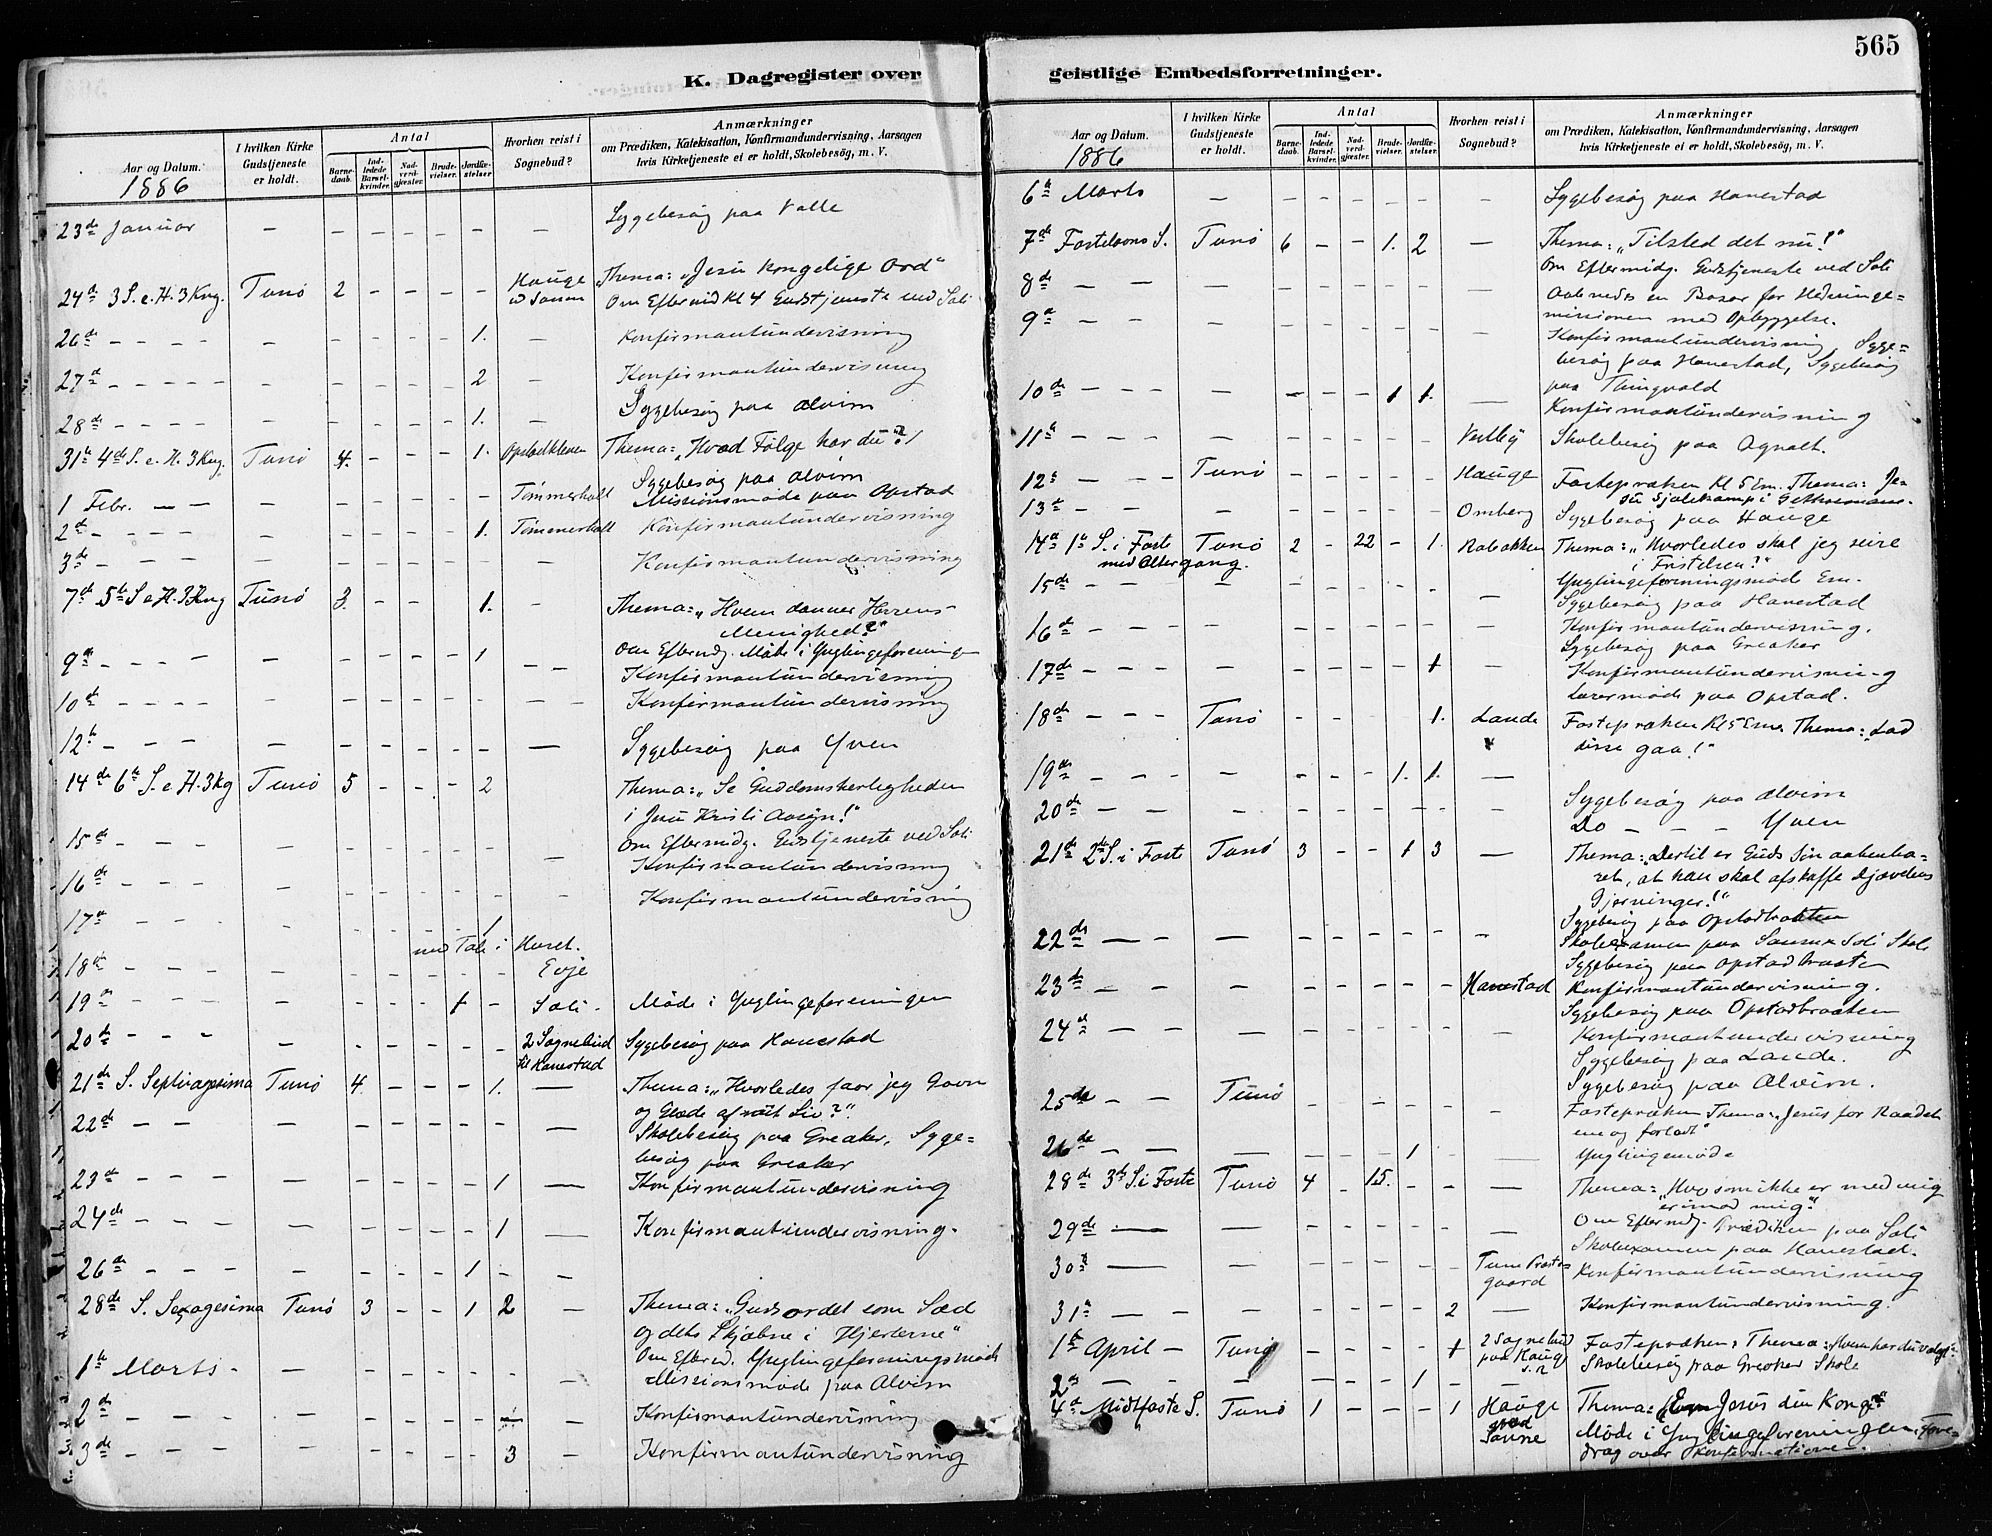 565
K. Dagregister over geistlige Embedsforretninger.
Aar og Datum.
1886
I hvilken Kirke Gudstjeneste er holdt.
Antal
Barne-daab.
Ind-ledede Barsel-kvinder.
Nad-verd-gjester.
Brude-vielser.
Jordfæ-stelser.
Hvorhen reist i Sognebud?
Anmærkninger
om Prædiken, Katekisation, Konfirmandundervisning, Aarsagen
hvis Kirketjeneste ei er holdt, Skolebesög, m. V.
23de Januar – – – – – – – Sygebesøg paa Valle
24de 3 S. e. H. 3 Kng. Tunø 2 – – – – Hauge Thema: „Jesu kongelige Ord"
Om Eftermid Kl 4 Gudstjeneste ved Soli
26de – – – – – – – 1. – Konfirmantundervisning
27de – – – – – – – 2 – Konfirmantundervisning
28de – – – – – – – 1. Sygebesøg paa Alvim
31te 4de S. e. H. 3 Kng. Tunø 4. – – – 1. Thema: „Hvad Følge har du?"
Sygebesøg paa Alvim
1 Febr. – – – – – – – – Tømmerholt Missionsmøde paa Opstad
2de – – – – – – 1. Tømmerholt Konfirmantundervisning
3de – – – – – – – – Konfirmantundervisning
7de 5te S e H. 3 Kng Tunø 3. – – 1. – Thema: „Hvem danner Herrens
Menighed?"
Om Eftermdg. Møde i Ynglingeforeningen
9de – – – – – – – 1 – – Konfirmantundervisning
10de – – – – – – – – – – Konfirmantundervisning
12te – – – – – – – – – Sygebesøg paa Yven
14de 6te S. e H. 3 Kg Tunø 5 – – – 2 Thema: „Se Guddomsherligheden
i Jesu Kristi Aasyn!"
Om Eftermidg. Gudstjeneste ved Soli
15de – – – – – – – – – Konfirmantundervisning
16de – – – – – – – – – Konfirmantundervisning
17de – – – – – – – 1
med Tale i Huset.
18de – – – – – – – – Evje
19de – – – – – – 1 – Soli. Møde i Ynglingeforeningen
20de – – – – – – – – 2 Sognebud Sygebesøg paa Hanestad
til Hanestad
21de S. Septuagesima Tunø 4. – – – 1. – Thema: „Hvorledes faar jeg Gavn
og Glæde af mit Liv?"
22de – – – – – – – – – Skolebesøg paa Greaker, Syge=
besøg paa Greaker
23de – – – – – – – – 1 – Konfirmantundervisning
24de – – – – – – – – 1 – Konfirmantundervisning.
26de – – – – – – – 1 – –
28de S. Sexagesima Tunø 3 – – 1 2 – Thema: „Guds ordet som Sæd
og dets Skjæbne i Hjerterne"
Om Efterm. Ynglingeforeningsmøde
1te Marts – – – – – – – – Missionsmøde paa Alvim
2de – – – – – – – – – – Konfirmantundervisning
3de – – – – – – – – 3 – Konfirmantundervisning
Aar og Datum.
1886
I hvilken Kirke Gudstjeneste er holdt.
Antal
Barne-daab.
Ind-ledede Barsel-kvinder.
Nad-verd-gjester.
Brude-vielser.
Jordfæ-stelser.
Hvorhen reist i Sognebud?
Anmærkninger
om Prædiken, Katekisation, Konfirmandundervisning, Aarsagen
hvis Kirketjeneste ei er holdt, Skolebesög, m. V.
6te Marts – – – – – – – Sygebesøg paa Hanestad
7de Fastelavns S. Tunø 6 – – 1. 2 – Thema: „Tilsted det nu!"
Om Eftermidg. Gudstjeneste ved Soli
8de – – – – – – – – – Aabnedes en Basar for Hedninge=
missionen med Opbyggelse.
9de – – – – – – – – – Konfirmantundervisning, Syge=
besøg paa Hanestad, Sygebesøg
paa Thingvold
10de – – – – – – – 1 1. – Konfirmantundervisning
11te – – – – – – – – – Vestby Skolebesøg paa Agnalt.
12te – – – Tunø – – – – – Hauge Fastepræken Kl 5 Em. Thema: Je=
su Sjælekamp i Gethsemane.
13de – – – – – – – – Omberg Sygebesøg paa Hauge
14de 1te S. i Faste Tunø 2 – 22 – 1. Thema: „Hvorledes skal jeg seire
med Altergang. i Fristelsen?"
15de – – – – – – – – – Ynglingeforeningsmøde Em.
Sygebesøg paa Hanestad
16de – – – – – – – – – Konfirmantundervisning.
Sygebesøg paa Greaker
17de – – – – – – – – 1 – Konfirmantundervisning
Lærermøde paa Opstad.
18de – – – Tunø – – – – 1. Lande Fastepræken Kl 5 Em. Thema: „Lad
disse gaa!"
19de – – – – – – – 1. 1. –
20de – – – – – – – – – Sygebesøg paa Alvim
Do – – – Yven
21de 2de S. i Faste Tunø 3 – – 1 3 – Thema: „Dertil er Guds Søn aabenba=
ret, at han skal afskaffe Djævelens
Gjerninger!"
Sygebesøg paa Opstadbraaten
22de – – – – – – – – – Skoleexamen paa Soli Skole
Sygebesøg paa Opstadbraaten
23de – – – – – – – – Hanestad Konfirmantundervisning.
Sygebesøg paa Opstadbraaten
24de – – – – – – – – – Konfirmantundervisning
Sygebesøg paa Lande.
Sygebesøg paa Alvim.
25de – – Tunø – – – – – – Fastepræken Thema: „Jesus for Raadet
ene og forladt"
26de – – – – – – – 1 – – Ynglingemøde
28de 3de S. i Faste Tunø 4 – 15. – – – Thema: „Hvo som ikke er med mig
er imod mig".
Om Eftermdg. Prædiken paa Soli
29de – – – – – – – – Skoleexamen paa Hanestad.
30te – – – – – – – – Tune Præste-
gaard Konfirmantundervisning
31te – – – – – – – 2 – Konfirmantundervisning.
1te April – Tunø – – – – 1 2 Sognebud Fastepræken; Thema: Hvem har du valgt"
paa Hauge Skolebesøg paa Greaker Skole
2de – – – – – – – 1 – –
4de Midtfaste S. Tunø 1 – – – 1 Hauge Thema: Jesus din Konge"
Møde i Ynglingeforeningen, Fore=
drag over Konfirmationen.